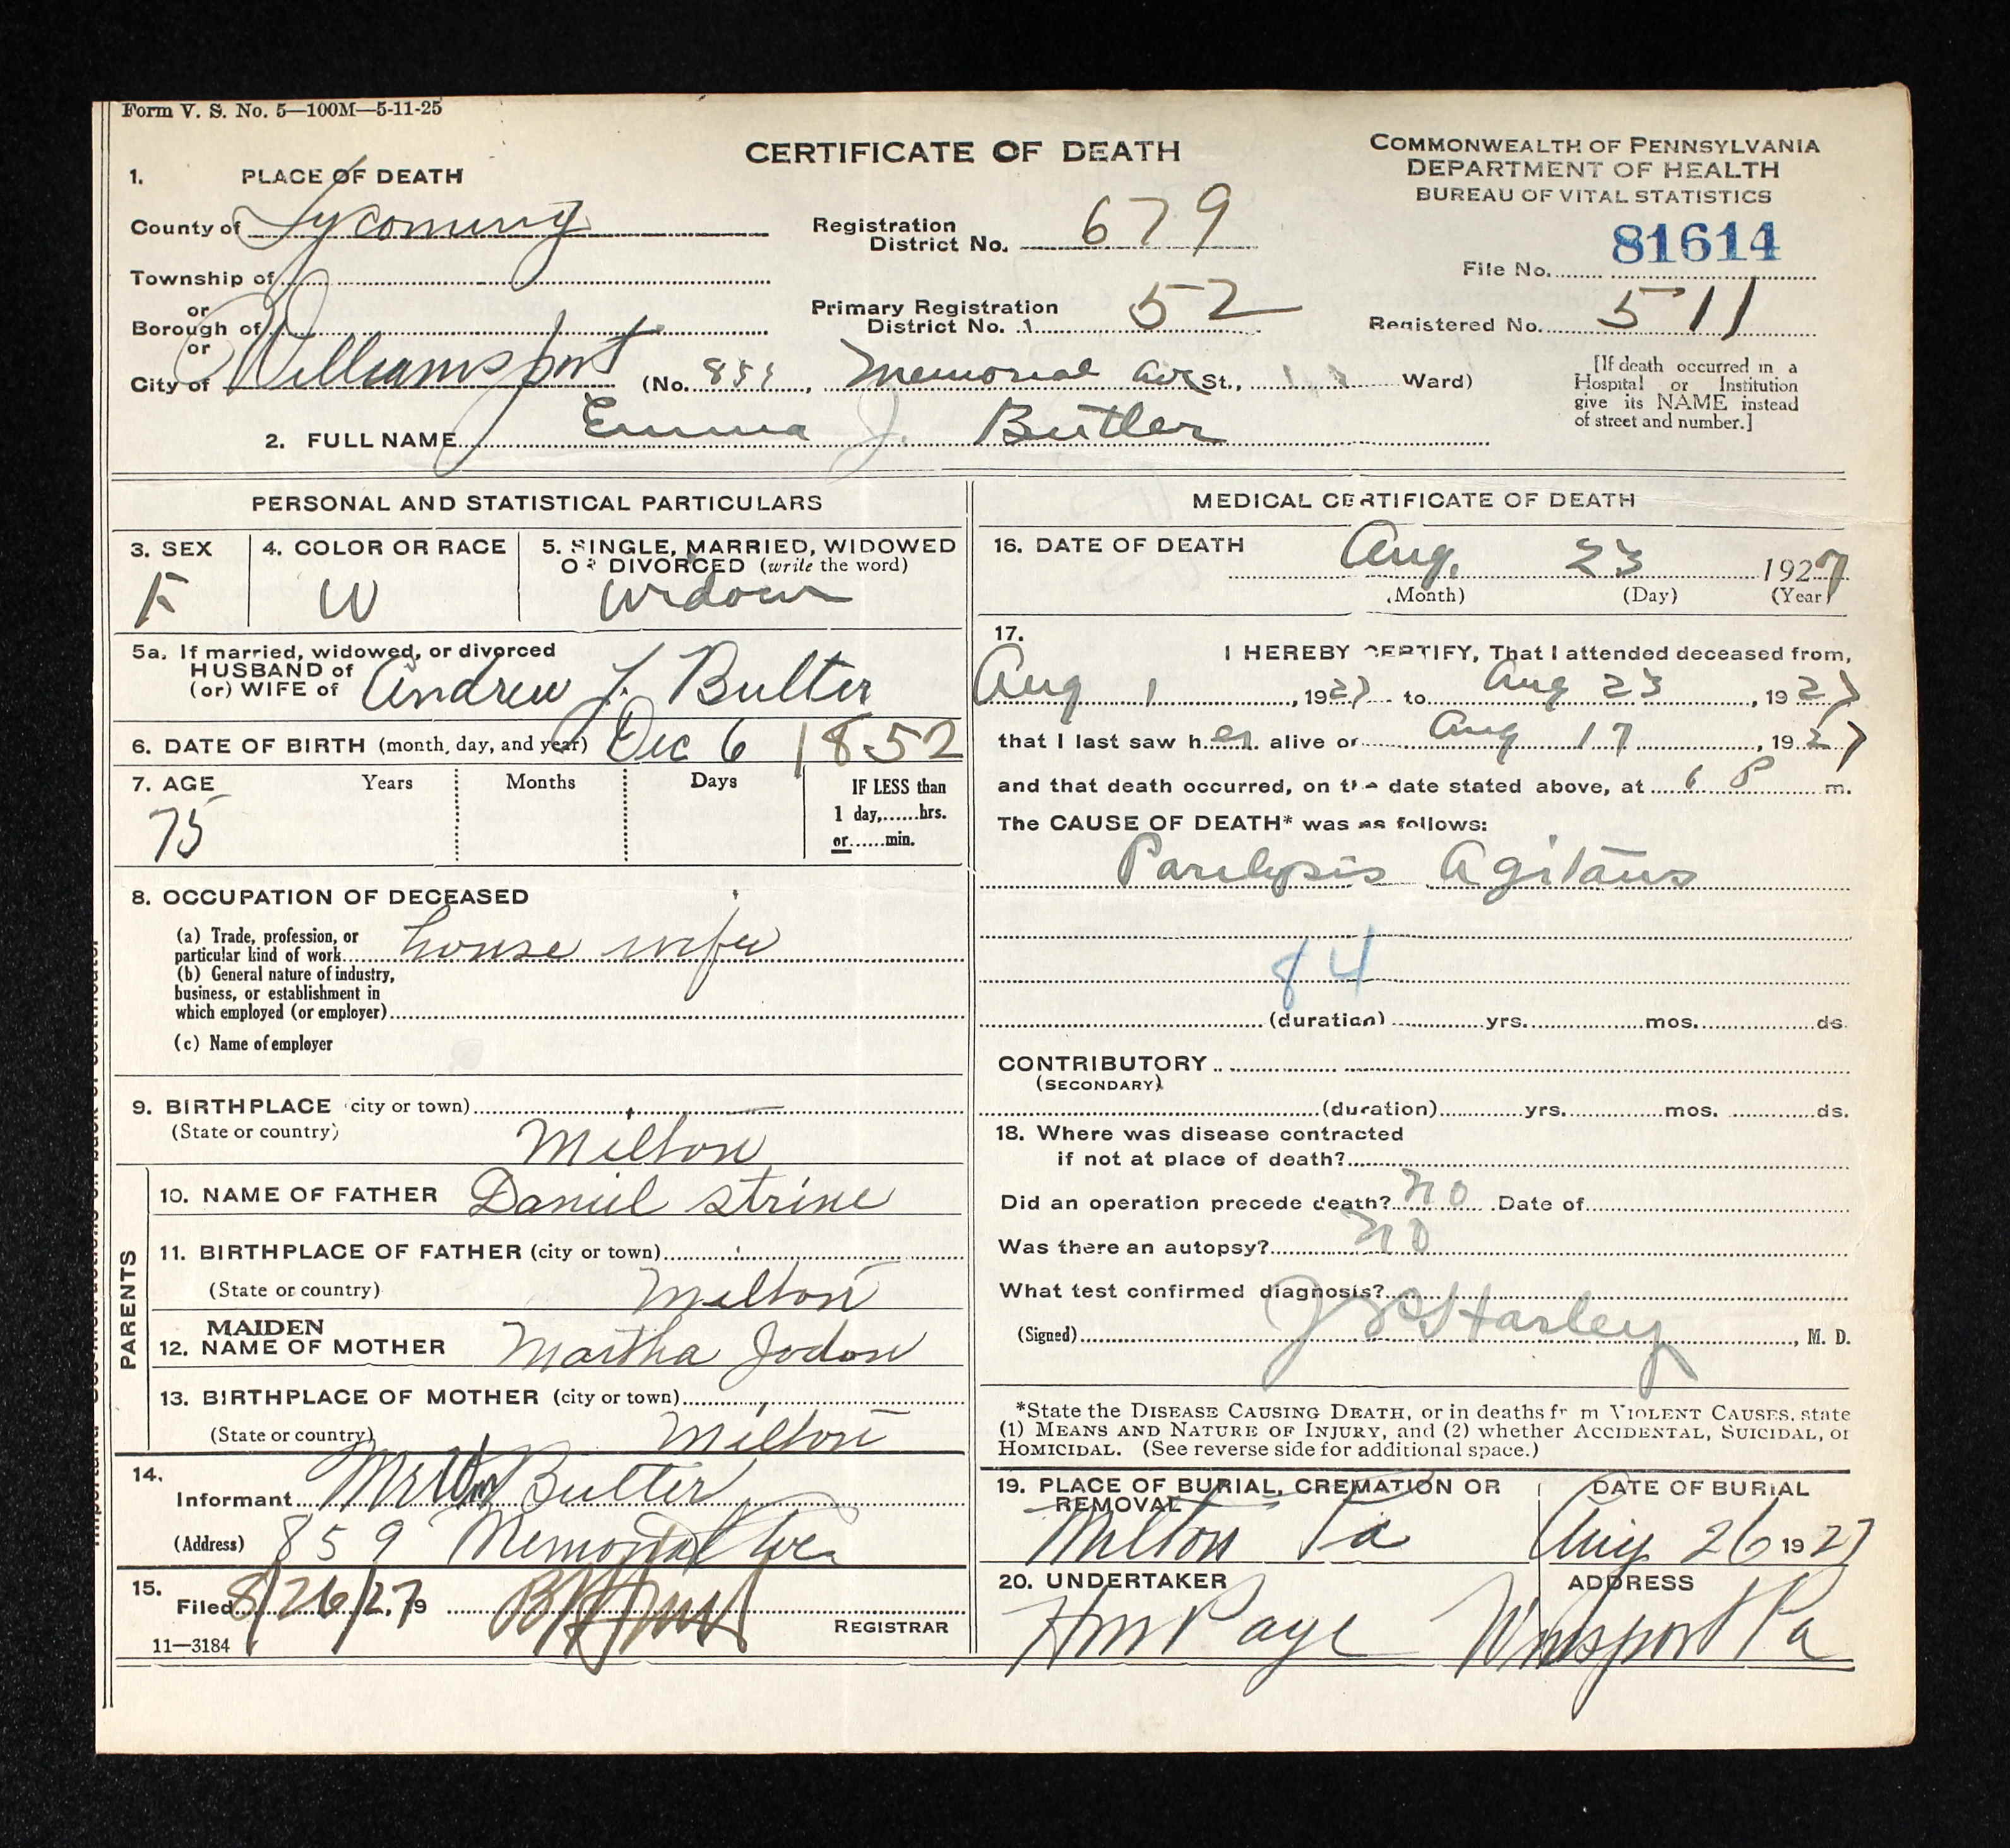 Form V. S. No. 5—100M—5-11-25
CERTIFICATE OF DEATH
COMMONWEALTH OF PENNSYLVANIA
DEPARTMENT OF HEALTH
BUREAU OF VITAL STATISTICS
1. PLACE OF DEATH
County of Lycoming
Registration District No. 679
81614
File No.
Township of
or
Borough of
or
Primary Registration District No. 52
Registered No. 511
City of Williamsport (No. 859, Memorial Ave St., Ward)
[If death occurred in a Hospital or Institution give its NAME instead of street and number.]
2. FULL NAME Emma J. Butler
PERSONAL AND STATISTICAL PARTICULARS
3. SEX F
4. COLOR OR RACE W
5. SINGLE, MARRIED, WIDOWED OR DIVORCED (write the word) Widow
5a. If married, widowed, or divorced
HUSBAND of
(or) WIFE of Andrew J. Butler
6. DATE OF BIRTH (month, day, and year) Dec 6 1852
7. AGE Years Months Days IF LESS than
1 day,......hrs.
or......min.
75
8. OCCUPATION OF DECEASED
(a) Trade, profession, or
particular kind of work house wife
(b) General nature of industry,
business, or establishment in
which employed (or employer)
(c) Name of employer
9. BIRTHPLACE (city or town)
(State or country) Milton
PARENTS
10. NAME OF FATHER Daniel Strine
11. BIRTHPLACE OF FATHER (city or town)
(State or country) Milton
12. MAIDEN NAME OF MOTHER Martha Jodon
13. BIRTHPLACE OF MOTHER (city or town)
(State or country) Milton
14.
Informant Mr Wm Butler
(Address) 859 Memorial Ave
15.
Filed 8/26/27 19
REGISTRAR
11—3184
MEDICAL CERTIFICATE OF DEATH
16. DATE OF DEATH Aug. 23 1927
(Month) (Day) (Year)
17. I HEREBY CERTIFY, That I attended deceased from,
Aug 1, 1927 to Aug 23, 1927
that I last saw her alive on Aug 17, 1927
and that death occurred, on the date stated above, at 6 P m.
The CAUSE OF DEATH* was as follows:
Paralysis Agitans
84
(duration) yrs. mos. ds.
CONTRIBUTORY
(SECONDARY)
(duration) yrs. mos. ds.
18. Where was disease contracted
if not at place of death?
Did an operation precede death? no Date of
Was there an autopsy? no
What test confirmed diagnosis?
(Signed) Harley, M. D.
*State the DISEASE CAUSING DEATH, or in deaths fr m VIOLENT CAUSES, state
(1) MEANS AND NATURE OF INJURY, and (2) whether ACCIDENTAL, SUICIDAL, or
HOMICIDAL. (See reverse side for additional space.)
19. PLACE OF BURIAL, CREMATION OR REMOVAL Milton Pa
DATE OF BURIAL Aug 26 1927
20. UNDERTAKER
ADDRESS
Hm Page Wmsport Pa